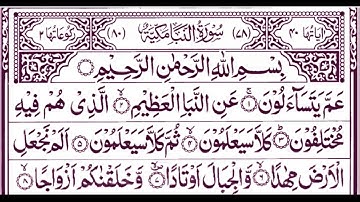 اٰیاتُها ٤٠ (٧٨) سُوْرَةُ النَّبَاِ مَكِّیَّةٌ (٨٠) رُکُوْعَاتُهَا ٢
بِسْمِ اللّٰهِ الرَّحْمٰنِ الرَّحِیْمِ
عَمَّ یَتَسَآءَلُوْنَ ۝١ عَنِ النَّبَاِ الْعَظِیْمِ ۝٢ الَّذِیْ هُمْ فِیْهِ
مُخْتَلِفُوْنَ ۝٣ كَلَّا سَیَعْلَمُوْنَ ۝٤ ثُمَّ كَلَّا سَیَعْلَمُوْنَ ۝٥ اَلَمْ نَجْعَلِ
الْاَرْضَ مِهٰدًا ۝٦ وَّالْجِبَالَ اَوْتَادًا ۝٧ وَّخَلَقْنٰكُمْ اَزْوَاجًا ۝٨